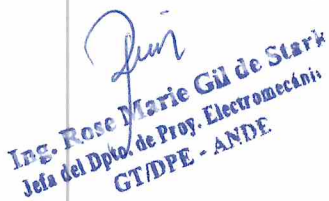 Ing. Rose Marie Gil de Stark
Jefa del Dpto. de Proy. Electromecáni
GT/DPE - ANDE